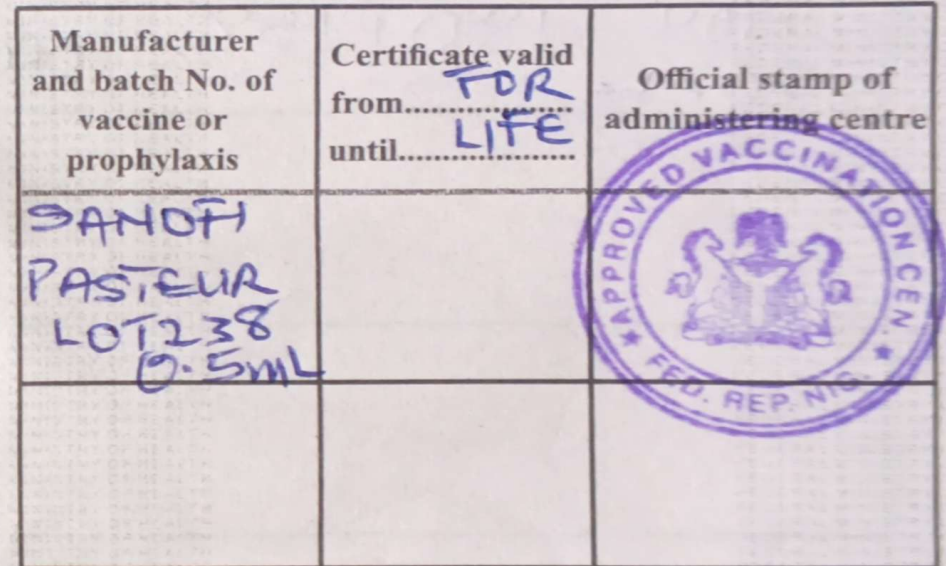 Manufacturer
and batch No. of
vaccine or
prophylaxis
Certificate valid
from.................... FOR
until.................... LIFE
Official stamp of
administering centre
SANOFI
PASTEUR
LOT238
0.5mL
★ APPROVED VACCINATION CEN. ★
FED. REP. NIG.